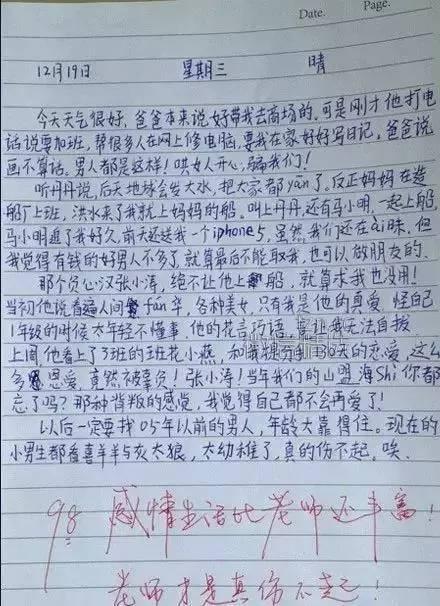 Date.
Page.
12月19日 星期三 晴
今天天气很好,爸爸本来说好带我去商场的,可是刚才他打电
话说要加班,帮很多人在网上修电脑,要我在家好好写日记,爸爸说
画不算话。男人都是这样!哄女人开心,骗我们!
听丹丹说,后天地球会发大水,把大家都yān了。反正妈妈在造
船厂上班,洪水来了我就上妈妈的船。叫上丹丹,还有马小明,一起上船,
马小明追了我好久,前天还送我一个iphone5,虽然我们还在ài昧,但
我觉得有钱的好男人不多了,就算最后不能取我,也可以做朋友的。
那个负心汉张小涛,绝不让他上船,就算求我也没用!
当初他说看遍人间fán华,各种美女,只有我是他的真爱,怪自己
1年级的时候太年轻不懂事,他的花言巧语,竟让我无法自拔
上周他看上了3班的班花小燕,和我分手 30天的恋爱,这么
多恩爱,竟然被辜负!张小涛!当年我们的山盟海shi你都
忘了吗?那种背叛的感觉,我觉得自己都不会再爱了!
以后一定要找05年以前的男人,年龄大靠得住。现在的
小男生都看喜羊羊与灰太狼,太幼稚了,真的伤不起,唉。
98 感情生活比老师还丰富!
老师才是真伤不起!